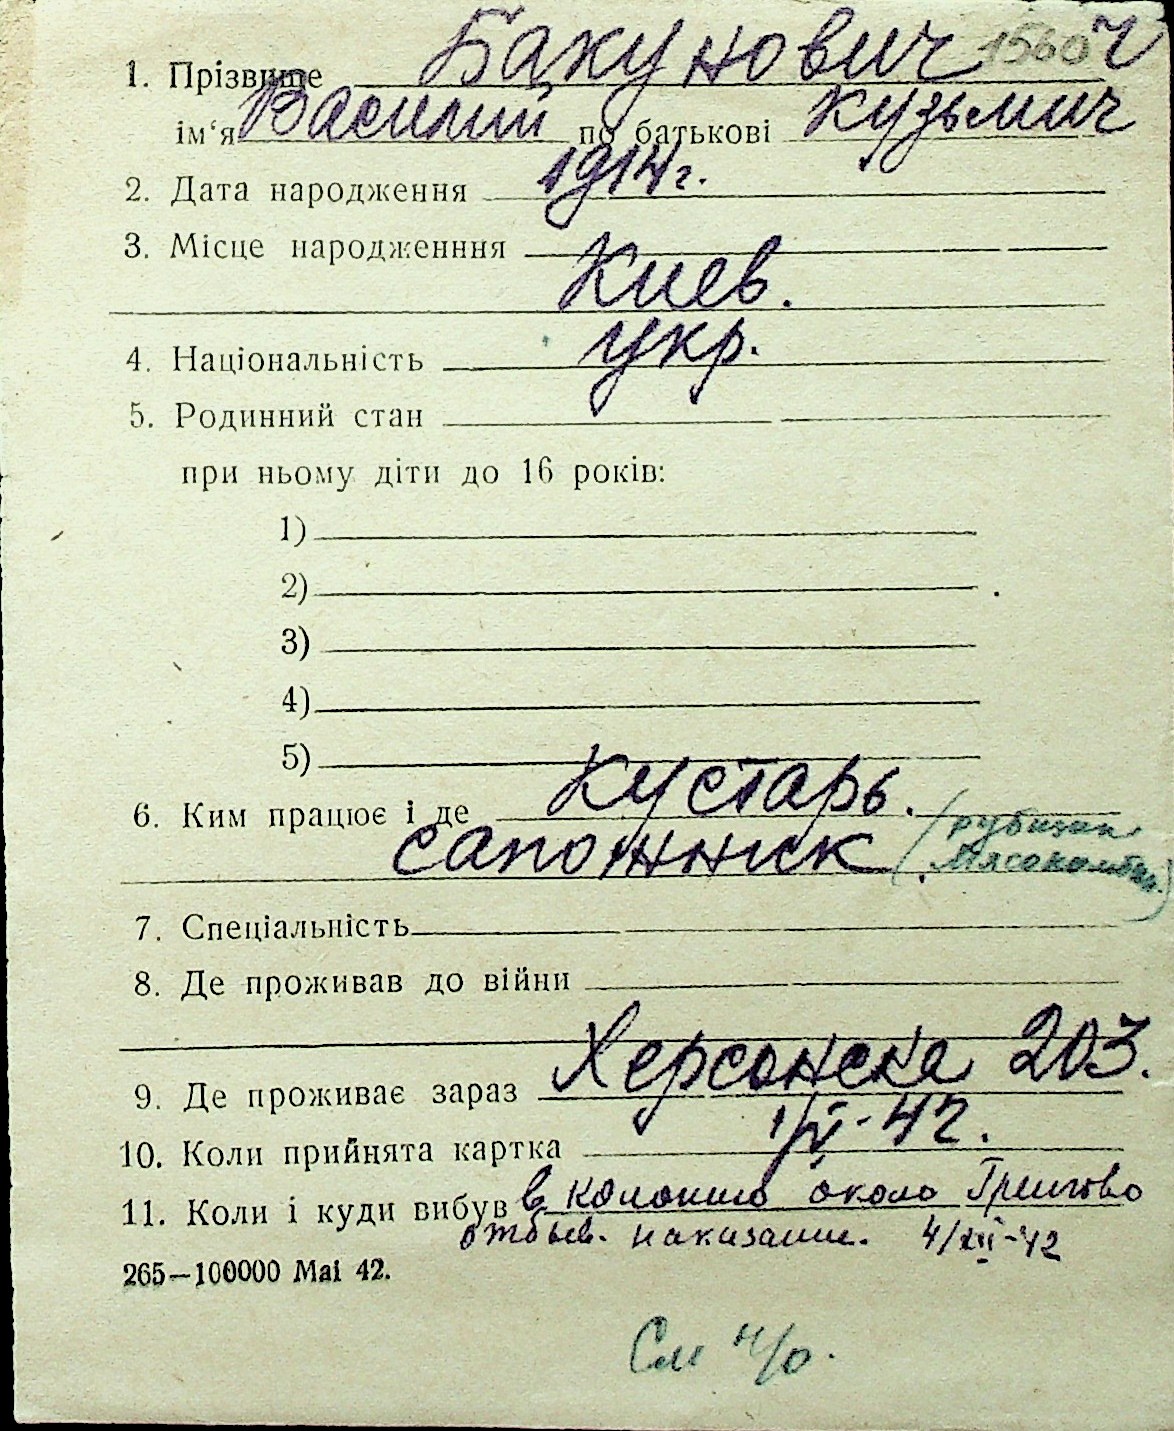 1. Прізвище Бакунович 1560 Ч
ім‘я Василий по батькові Кузьмич
2. Дата народження 1914 г.
3. Місце народженння
Киев.
4. Національність укр.
5. Родинний стан
при ньому діти до 16 років:
1)
2)
3)
4)
5)
6. Ким працює і де Кустарь.
сапожник (рубщик мясокомбин.)
7. Спеціальність
8. Де проживав до війни
9. Де проживає зараз Херсонска 203.
10. Коли прийнята картка 1/V-42.
11. Коли і куди вибув в колонию около
отбыв. наказание. 4/XII-42
265—100000 Mai 42.
См н/о.